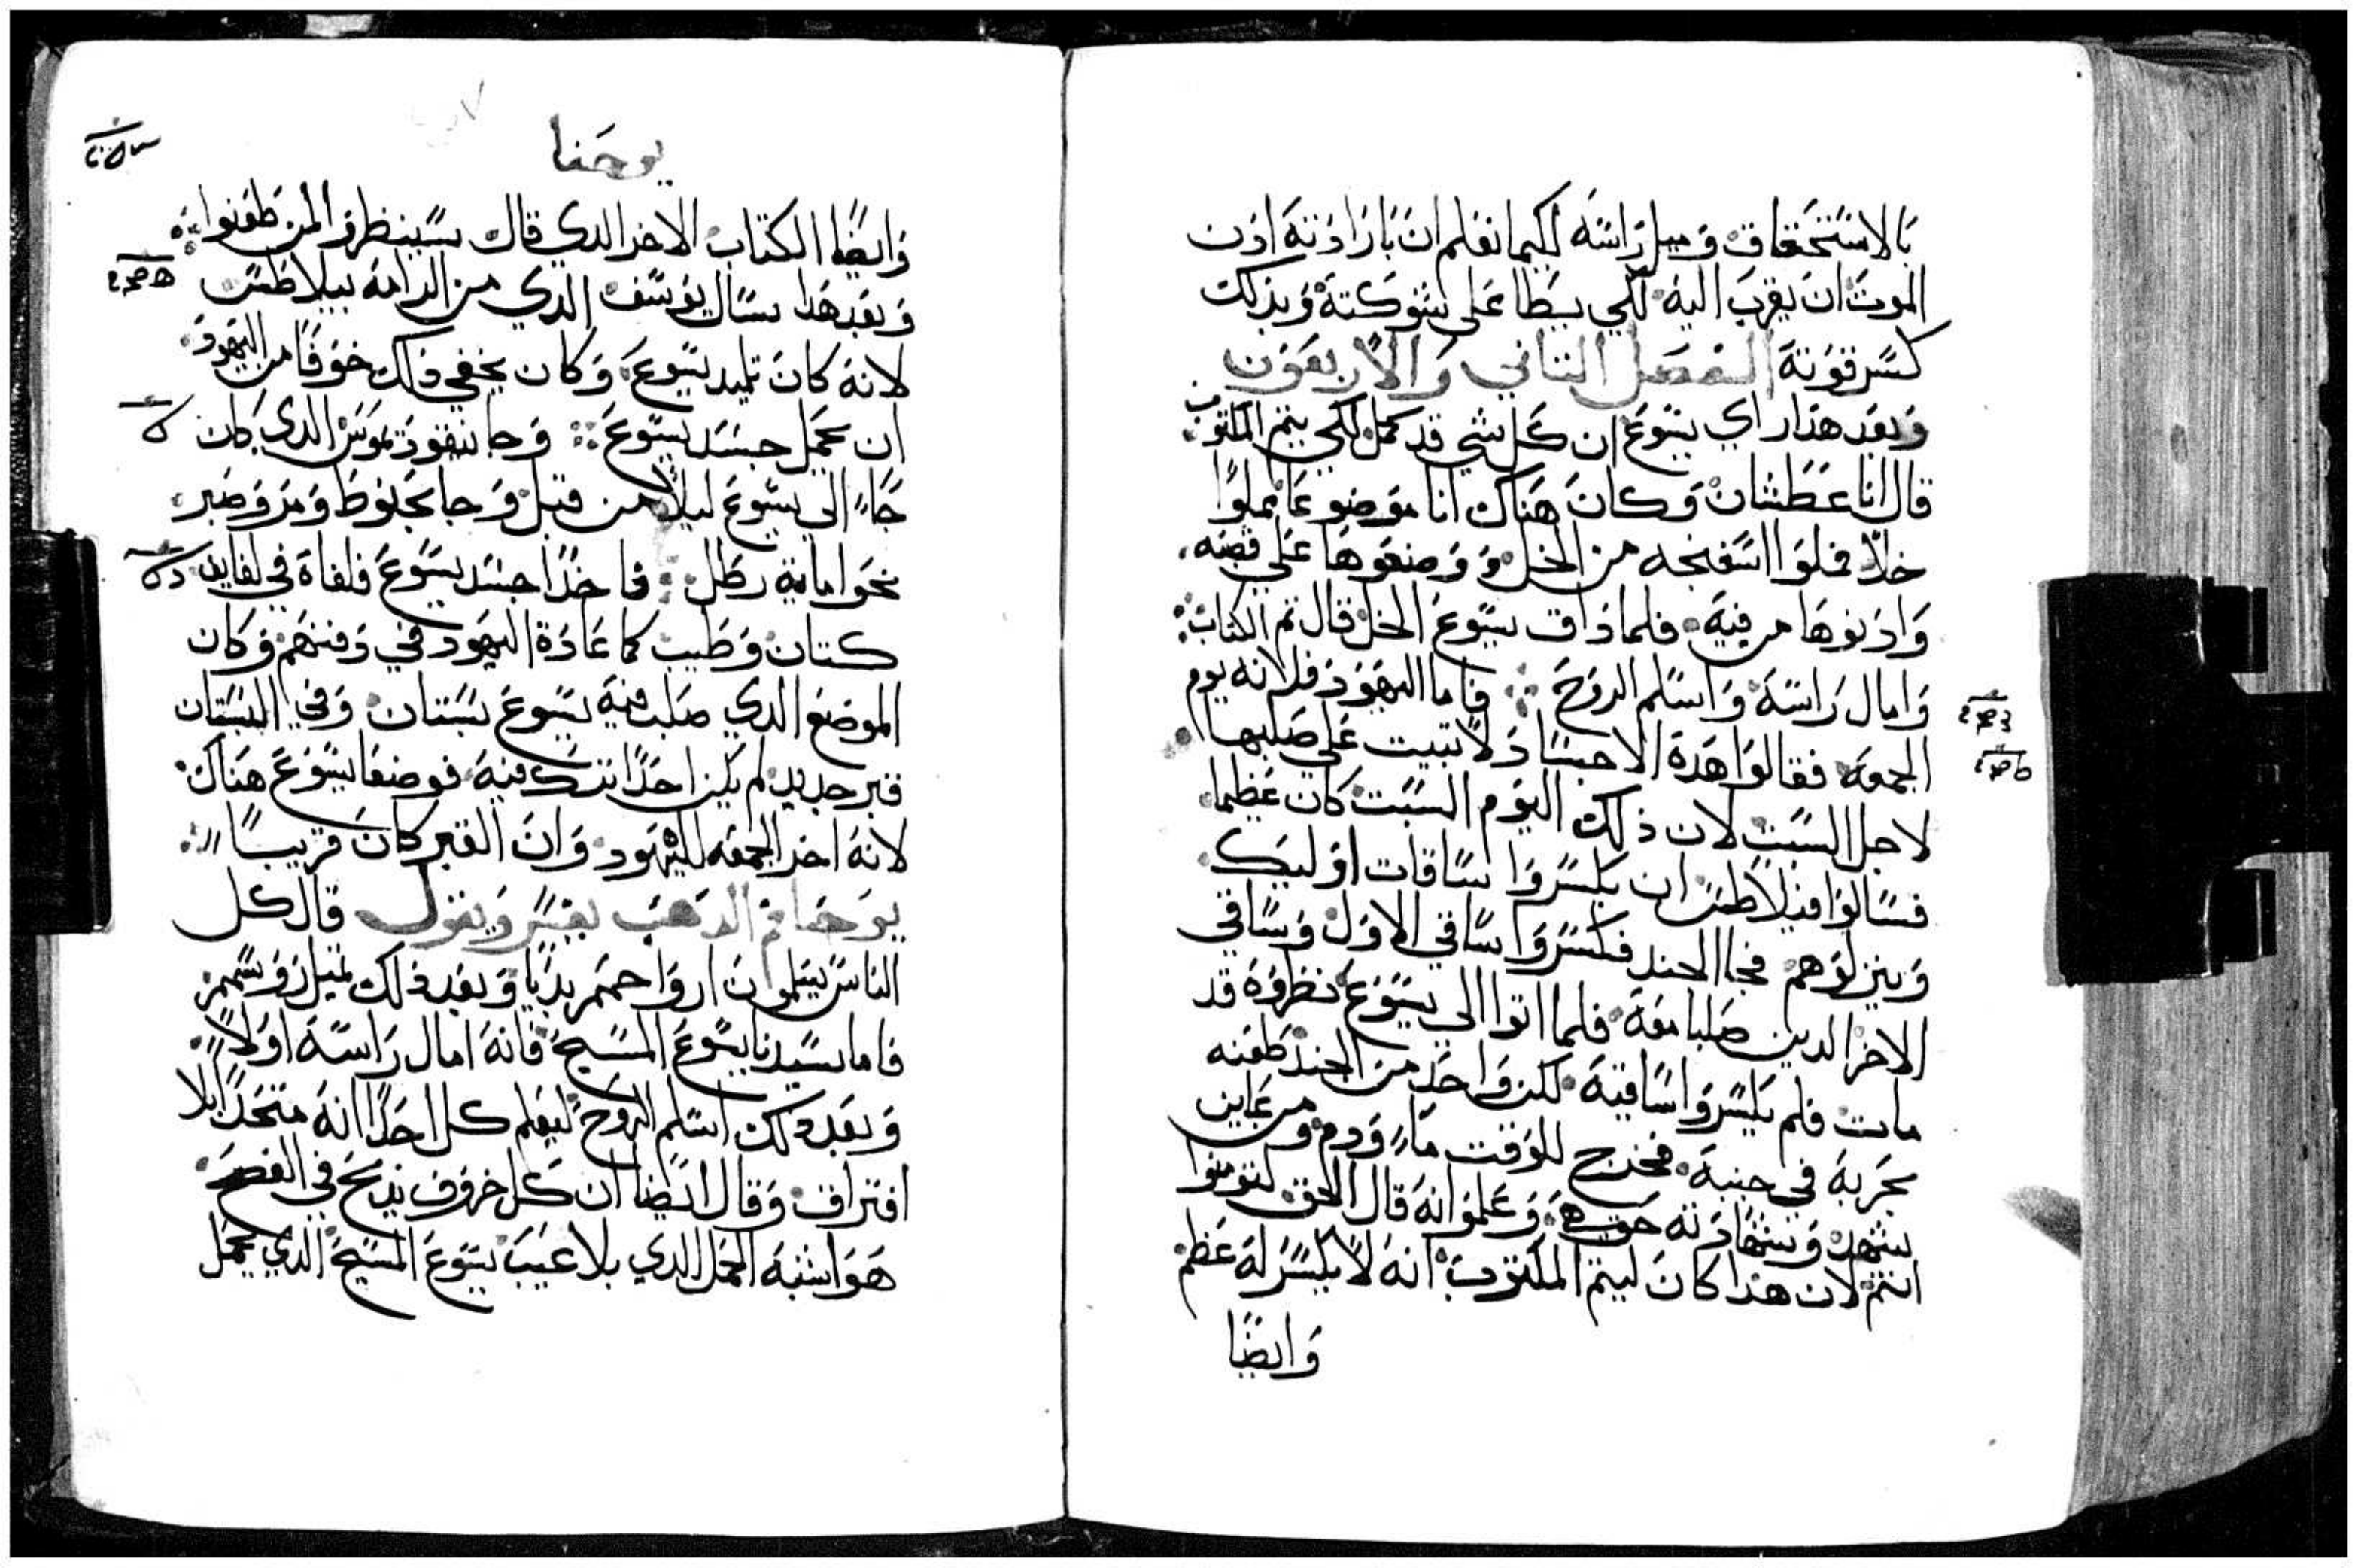 بالاستحقاق وميل راسه لكيما نعلم ان بارادته اذن
الموت ان يقرب اليه لكي يسطا على شوكته وبذلك
كسر قوته الفصل التاني والاربعون
وبعد هذا راي يسوع ان كل شي قد كمل لكي يتم المكتوب
قال انا عطشان وكان هناك انا موضوعا مملوا
خلا فملوا اسفنجه من الخل ووضعوها علي قصبه
وادنوها من فيه فلما ذاق يسوع الخل قال تم الكتاب
وامال راسه واسلم الروح فاما اليهود فلانه يوم
الجمعه فقالوا هده الاجساد لا تبيت علي صليبها
لاجل السبت لان ذلك اليوم السبت كان عظيما
فسالوا فيلاطس ان يكسروا ساقات اوليك
وينزلوهم فجا الجند فكسروا ساقي الاول وساقي
الاخر الدين صلبا معه فلما اتوا الي يسوع نظروه قد
مات فلم يكسروا ساقيه لكن واحد من الجند طعنه
بحربه في جنبه فخرج للوقت ماء ودم ومن عاين
يشهد وشهادته حق هي وعلموا انه قال الحق لتومنوا
انتم لان هدا كان ليتم المكتوب انه لا يكسر له عظم
وايضا
يوحنا
وايضا الكتاب الاخر الدي قال سينظرو المن طعنوا
وبعد هدا سال يوسف الدي من الرامه بيلاطس
لانه كان تلميد يسوع وكان يخفي دلك خوفا من اليهود
ان يحمل جسد يسوع وجا نيقوديموس الدي كان
جاء الي يسوع ليلا من قبل وجا بحنوط ومر وصبر
نحوا ماية رطل فاخدا جسد يسوع فلفاه في لفايف
كتان وطيب كما عادة اليهود في دفنهم وكان
الموضع الدي صلب فيه يسوع بستان وفي البستان
قبر جديد لم يكن احدا ترك فيه فوضعا يسوع هناك
لانه اخر الجمعه لليهود وان القبر كان قريبا
يوحنا فم الدهب يفسر ويقول قال كل
الناس يسلمون ارواحهم بديا وبعد دلك تميل روسهم
فاما سيدنا يسوع المسيح فانه امال راسه اولا
وبعد دلك اسلم الروح ليعلم كل احدا انه متحدا بلا
افتراق وقال ايضا ان كل خروف يدبح في الفصح
هو اشبه الحمل الدي بلا عيب يسوع المسيح الدي يحمل